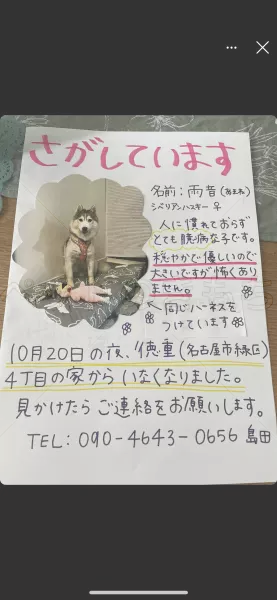 さがしています
名前：雨音(あまね)
シベリアンハスキー ♀
人に慣れておらず
とても臆病な子です。
穏やかで優しいので
大きいですが怖くあり
ません。
同じハーネスを
つけています
10月20日の夜、徳重(名古屋市緑区)
4丁目の家からいなくなりました。
見かけたらご連絡をお願いします。
TEL：090-4643-0656 島田